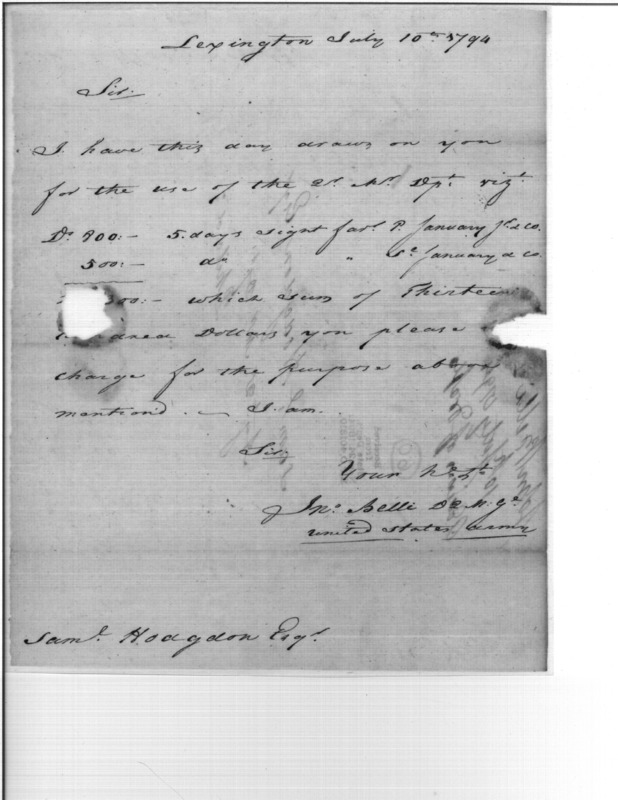 Lexington July 10th 1794
Sir.
I have this day drawn on you
for the use of the Qr. Mr. Dpt. vizt.
Ds. 800:- 5. days sight favr. P. January Jr. & co.
500:- do " Dr. January & co
00:- which sum of Thirteen
Dollars you please
charge for the purpose above
mentiond. — I am.
Sir.
Your hble St
Jno. Belli DQ.M.Gl.
United States Army
Saml. Hodgdon Esqr.